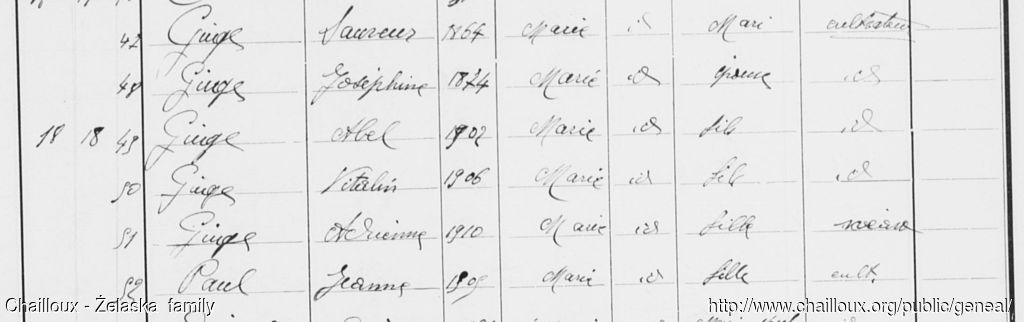 47 Ginge Sauveur 1864 Marié id Mari cultivateur
48 Ginge Joséphine 1874 Marié id épouse id
18 18 49 Ginge Abel 1902 Marié id fils id
50 Ginge Vitalin 1906 Marié id fils id
51 Ginge Adrienne 1910 Marié id fille
52 Paul Jeanne 1905 Marié id fille cult.
Chailloux - Żelaska family
http://www.chailloux.org/public/geneal/